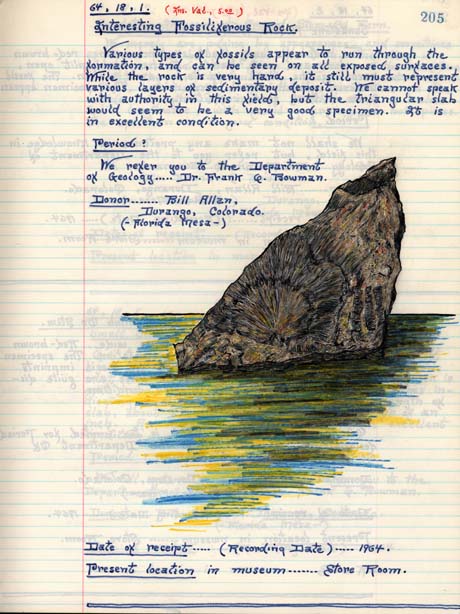 64, 18, 1. (Ins. Val., 5.00)
205
Interesting Fossiliferous Rock.
Various types of fossils appear to run through the
formation, and can be seen on all exposed surfaces.
While the rock is very hard, it still must represent
various layers of sedimentary deposit. We cannot speak
with authority in this field, but the triangular slab
would seem to be a very good specimen. It is
in excellent condition.
Period?
We refer you to the Department
of Geology..... Dr. Frank C. Bowman.
Donor....... Bill Allan,
Durango, Colorado.
(-Florida Mesa-)
Date of receipt..... (Recording Date)..... 1964.
Present location in museum....... Store Room.